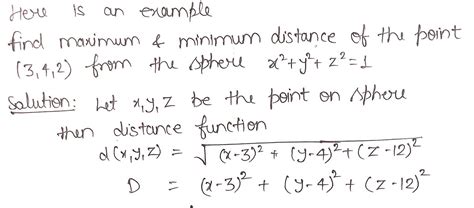 Here is an example
find maximum & minimum distance of the point
(3,4,2) from the sphere x²+y²+z²=1
Solution: Let x,y,z be the point on sphere
then distance function
d(x,y,z) = √(x-3)² + (y-4)²+(z-12)²
D = (x-3)² + (y-4)² + (z-12)²